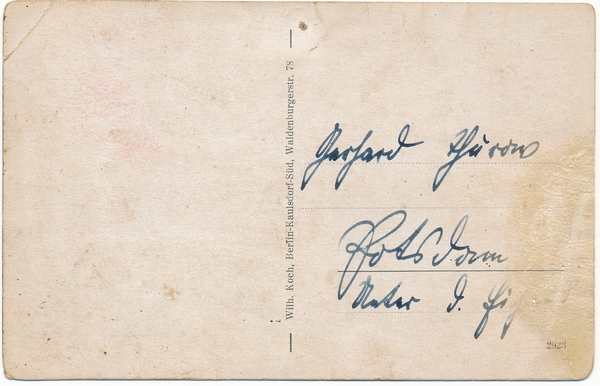 Wilh. Koch, Berlin-Kaulsdorf-Süd, Waldenburgerstr. 78
Gerhard Thurow
Potsdam
Unter d.
2923